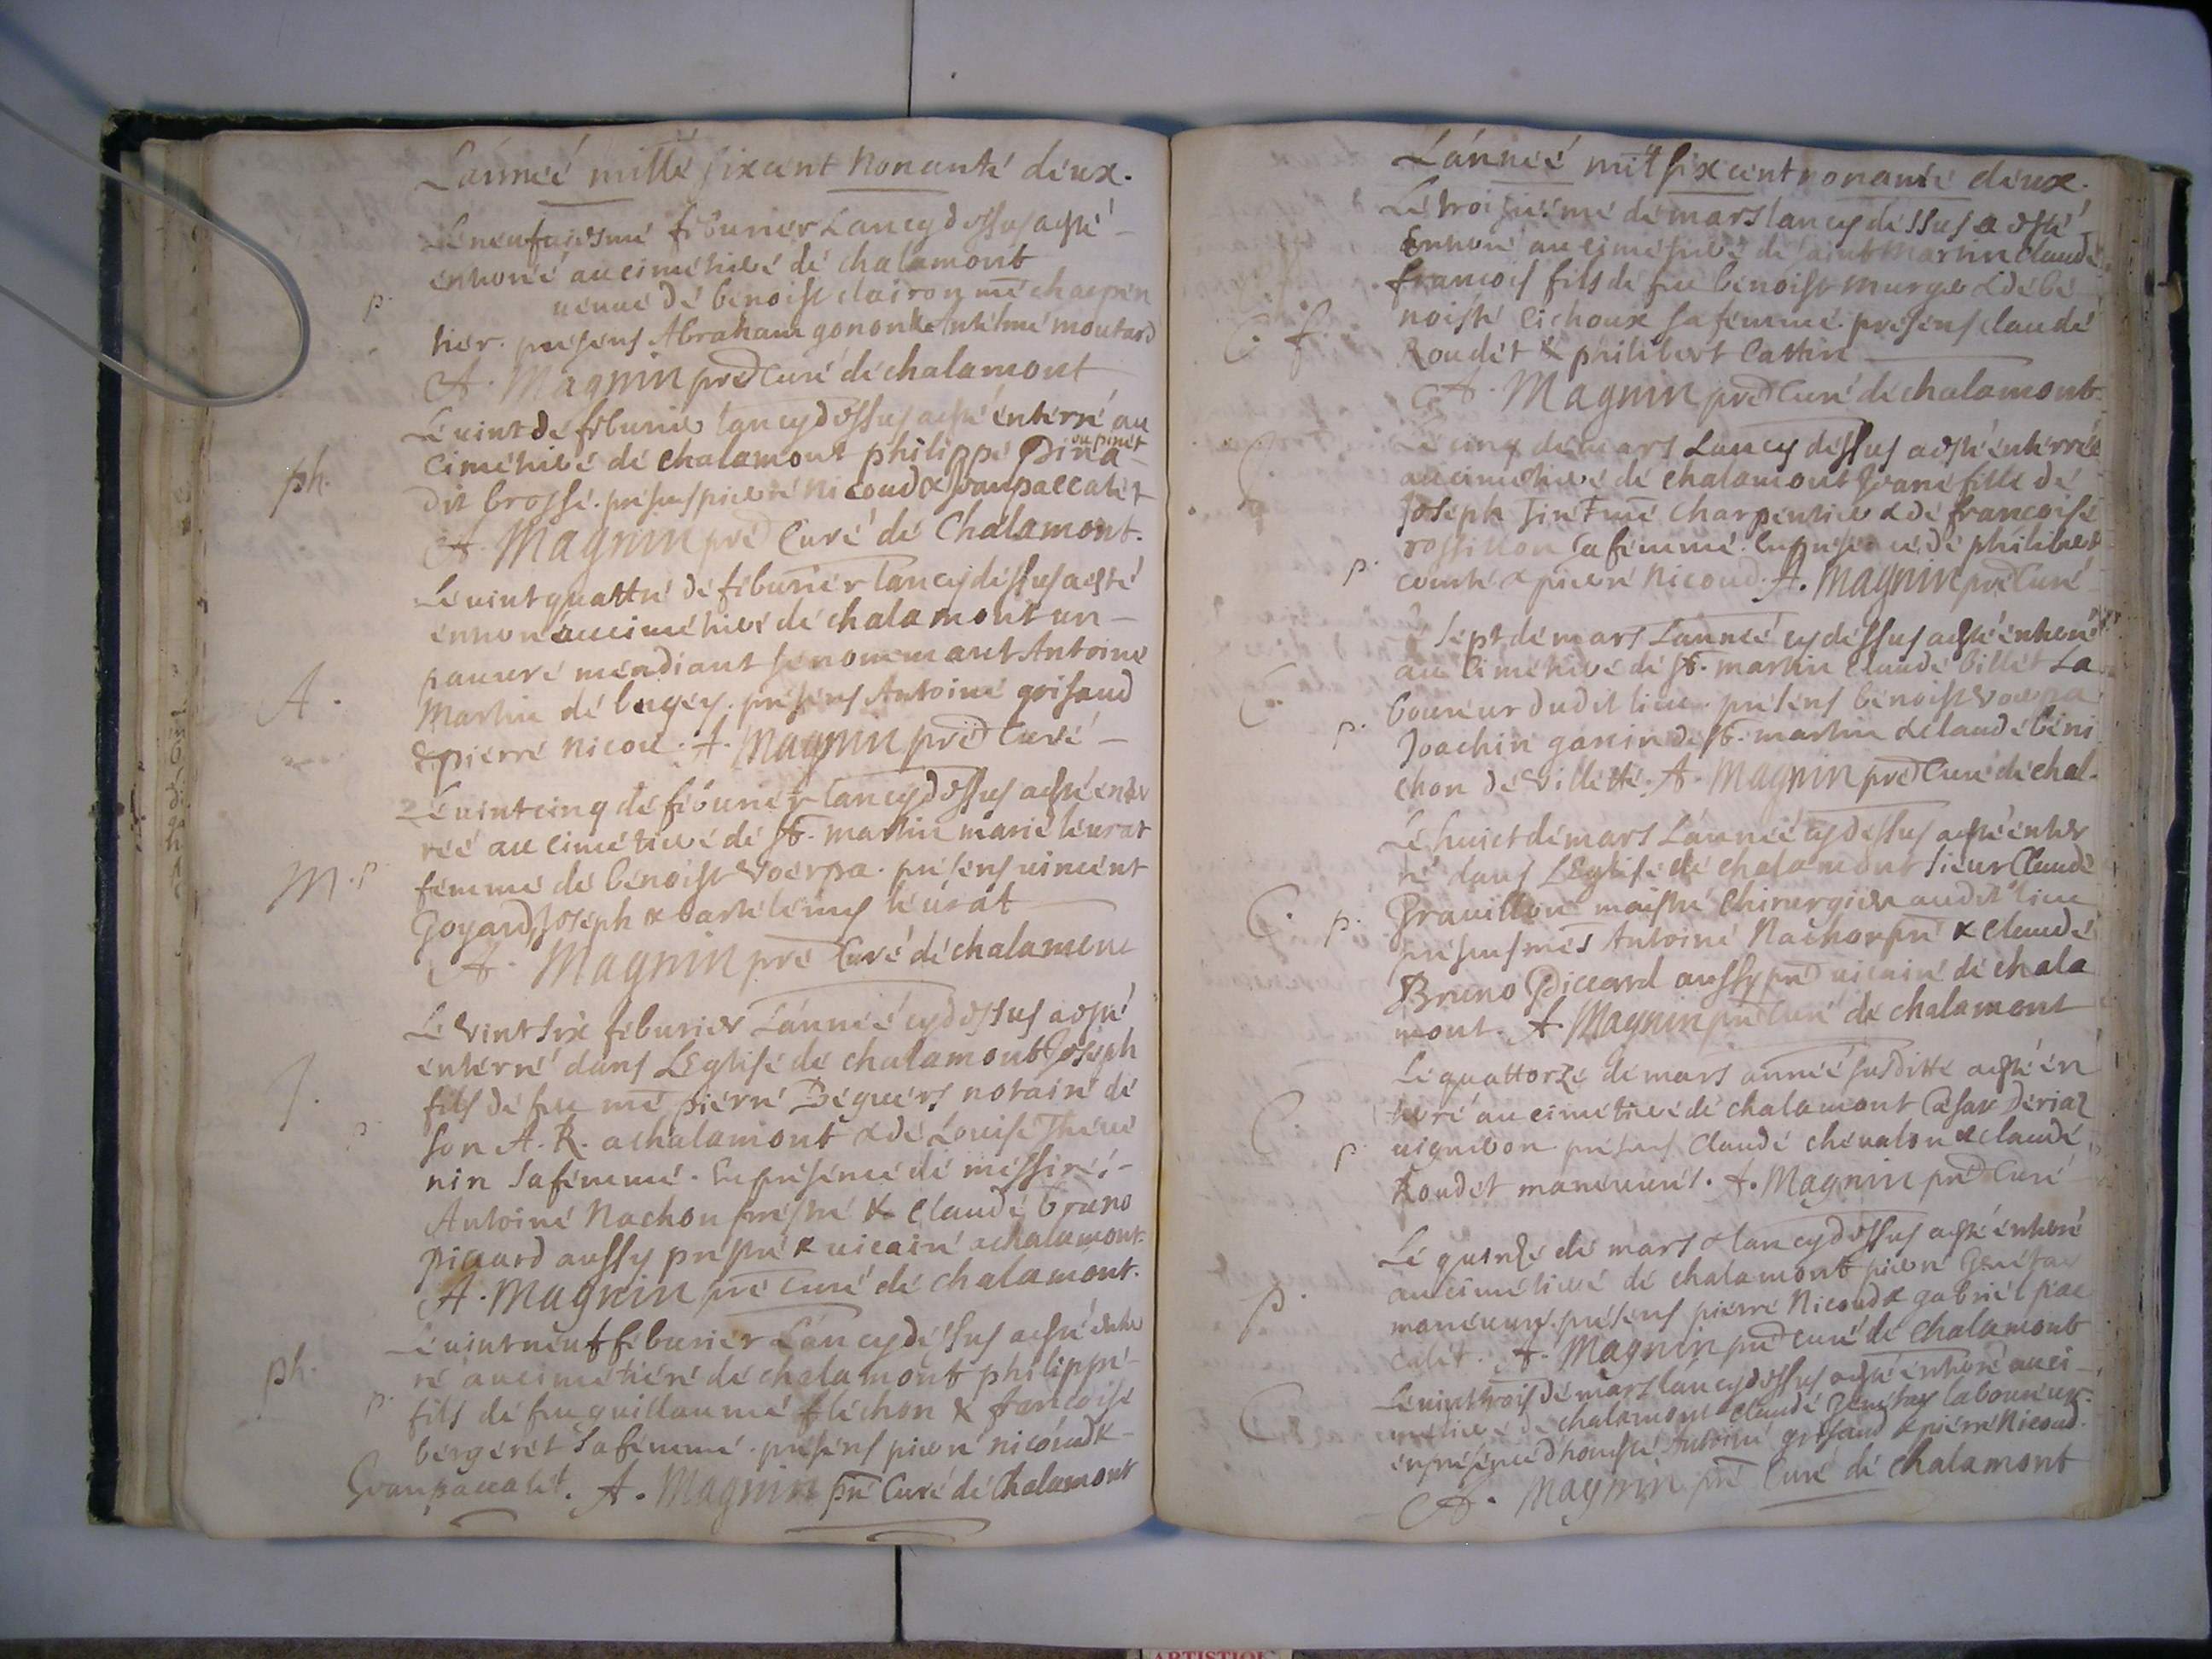 Lánneé millé sixcent Nonanté déux.
Lé neufuiesmé féburier Lancydessus a esté
enterré au cimetieré dé chalamont
p. ueuué dé benoist clairon mé charpen
tier. présens Abraham gonon & Antelmé moutard
A. Magnin pré Curé dé chalamont
Lé uint dé féburier lancydessus a esté énterré au
ph. Ciméticré dé chalamont philippé Pina ou pinet
dit brossé. présens pierré Nicoud & Jvan paccalét
A. Magnin pré Curé dé Chalamont.
Lé uintquattré dé féburier lancydéssus a esté
enterré au cimétieré dé chalamont un
A. pauuré méndiant sé nommant Antoiné
Martin dé bugéy. présens Antoiné grisaud
& pierré Nicou. A. Magnin pré Curé
Lé uintcinq dé féburiér lancydessus a esté entér
réé au cimétieré dé st. martin marié léurat
M. p. fémmé dé bénoist Voérpa. présens uincént
Goyard, Joséph & bartélémy léurat
A. Magnin pré Curé dé chalamont
Lé Vintsix féburier Lánnéé cydessus a esté
énterré dans L'Eglisé dé chalamont Joséph
J. fils dé feu mé piérré Déguérs notairé dé
p. son A. R. a chalamont & dé Louisé Théué
nin sa fémmé. En présencé dé méssirés
Antoiné Nachon préstré & Claudé bruno
piccard aussy préstré & uicairé a chalamont.
A. Magnin pré Curé dé chalamont.
Lé uintneuf féburier Láncydéssus a esté entér
ph. ré au cimétiéré dé chalamont philippé
p. fils dé feu guillaumé fléchon & francoisé
bérgérét sa fémmé. présens pierré nicoud &
Jvan paccalét. A. Magnin pré Curé dé chalamont
Lánnéé mil six cent nonanté déux.
Lé troisiésmé dé mars lancydéssus a esté
Enterré au cimétieré dé saint Martin Claudé
francois fils dé feu bénoist murger & dé bé
C. f. noisté cichoux sa fémmé. présens claudé
Roudét & philibert Cattin
A. Magnin pré Curé dé chalamont
Lé cinq dé mars Lancydéssus a esté énterréé
au cimétieré dé chalamont Jvané fillé dé
Joséph mé charpentier & dé francoisé
rossillon sa fémmé. En préséncé dé philibért
p. comté & pierré Nicoud. A. Magnin pré Curé
Sépt dé mars Lánnéé cydéssus a esté énterré
au ciméticré dé st. martin Claudé billét La
C. p. boureur dudit lieu. présens bénoist Voérpa
Joachin ganin dé st. martin & claudé béni
chon dé Villétté. A. Magnin pré Curé dé chal.
Lé huict dé mars Lánnéé cydéssus a esté entér
ré dans L'Eglisé dé chalamont sieur Claudé
C. p. Grauillon maistré Chirurgien audit lieu
présens més Antoiné Nachon pré & Claudé
Bruno Piccard aussy pré uicairé dé chala
mont. A. Magnin pré Curé dé chalamont
Lé quattorzé dé mars annéé susditté a esté én
C. térré au cimétieré dé chalamont César Dériaz
p. uignéron présens Claudé chéualon & claudé
Roudét manéuurés. A. Magnin pré Curé
Lé quinzé dé mars & lancydessus a esté énterré
au cimétieré dé chalamont pierré
p. manéuuré. présens piérré Nicoud & gabriél pac
calét. A. Magnin pré curé dé chalamont
Lé uint trois dé mars lancydéssus a esté énterré au ci
C. métieré dé chalamont Claudé laboureur.
en préséncé d'honésté Antoiné grisaud & piérré Nicoud.
A. Magnin pré Curé dé chalamont
ARTISTIQUE